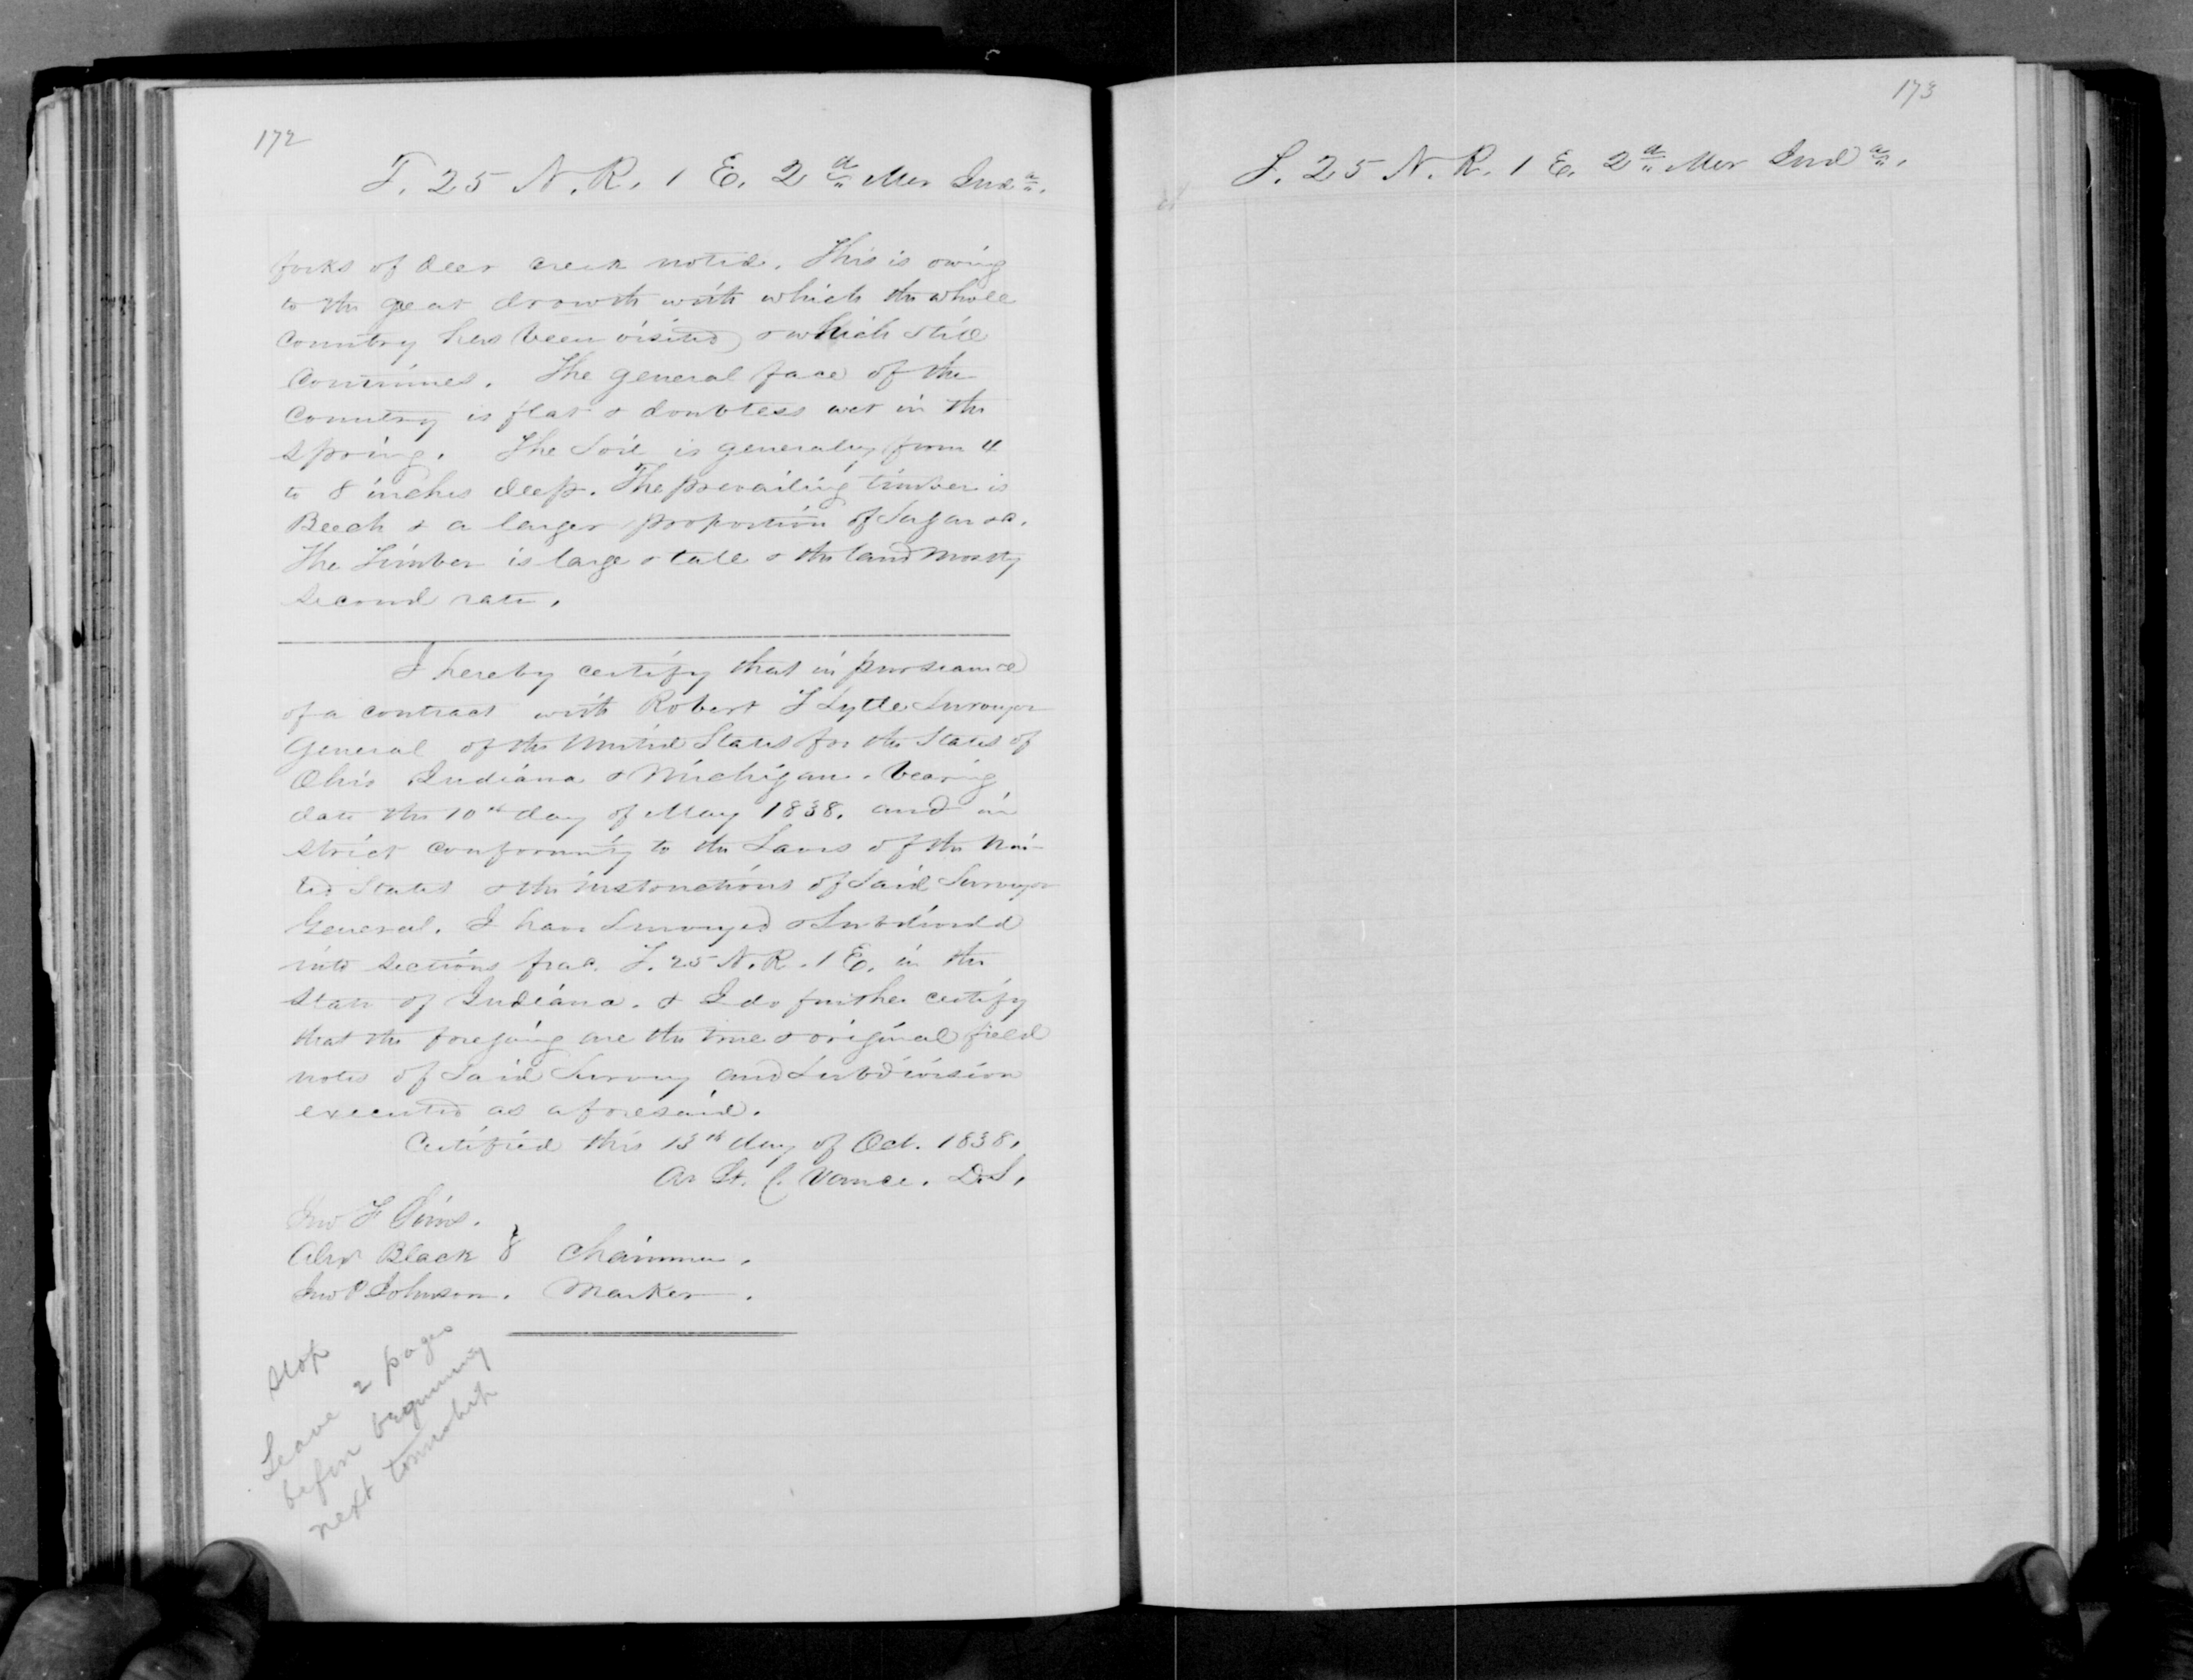 172
T. 25 N. R. 1 E. 2d Mer Inda.
forks of deer creek noted. This is owing
to the great drowth with which the whole
country has been visited & which still
continues. The general face of the
country is flat & doubtless wet in the
spring. The Soil is generally from 4
to 8 inches deep. The prevailing timber is
Beech & a larger proportion of Sugar &c.
The Timber is large & tall & the land mostly
second rate.
I hereby certify that in pursuance
of a contract with Robert T Lytle Surveyor
General of the United States for the States of
Ohio Indiana & Michigan. bearing
date the 10th day of May 1838. and in
strict conformity to the Laws of the Uni-
ted States & the instructions of Said Surveyor
General. I have Surveyed & Subdivided
into sections frac. T. 25 N. R. 1 E. in the
State of Indiana. & I do further certify
that the foregoing are the true & original field
notes of Said Survey and Subdivision
executed as aforesaid.
Certified this 13th day of Oct. 1838.
Ar St. C. Vance. D.S.
Jno F Sims.
Alexr Black } Chainmen.
Jno P Johnson. Marker.
Stop
Leave 2 pages
before beginning
next township
173
T. 25 N. R. 1 E. 2d Mer Inda.